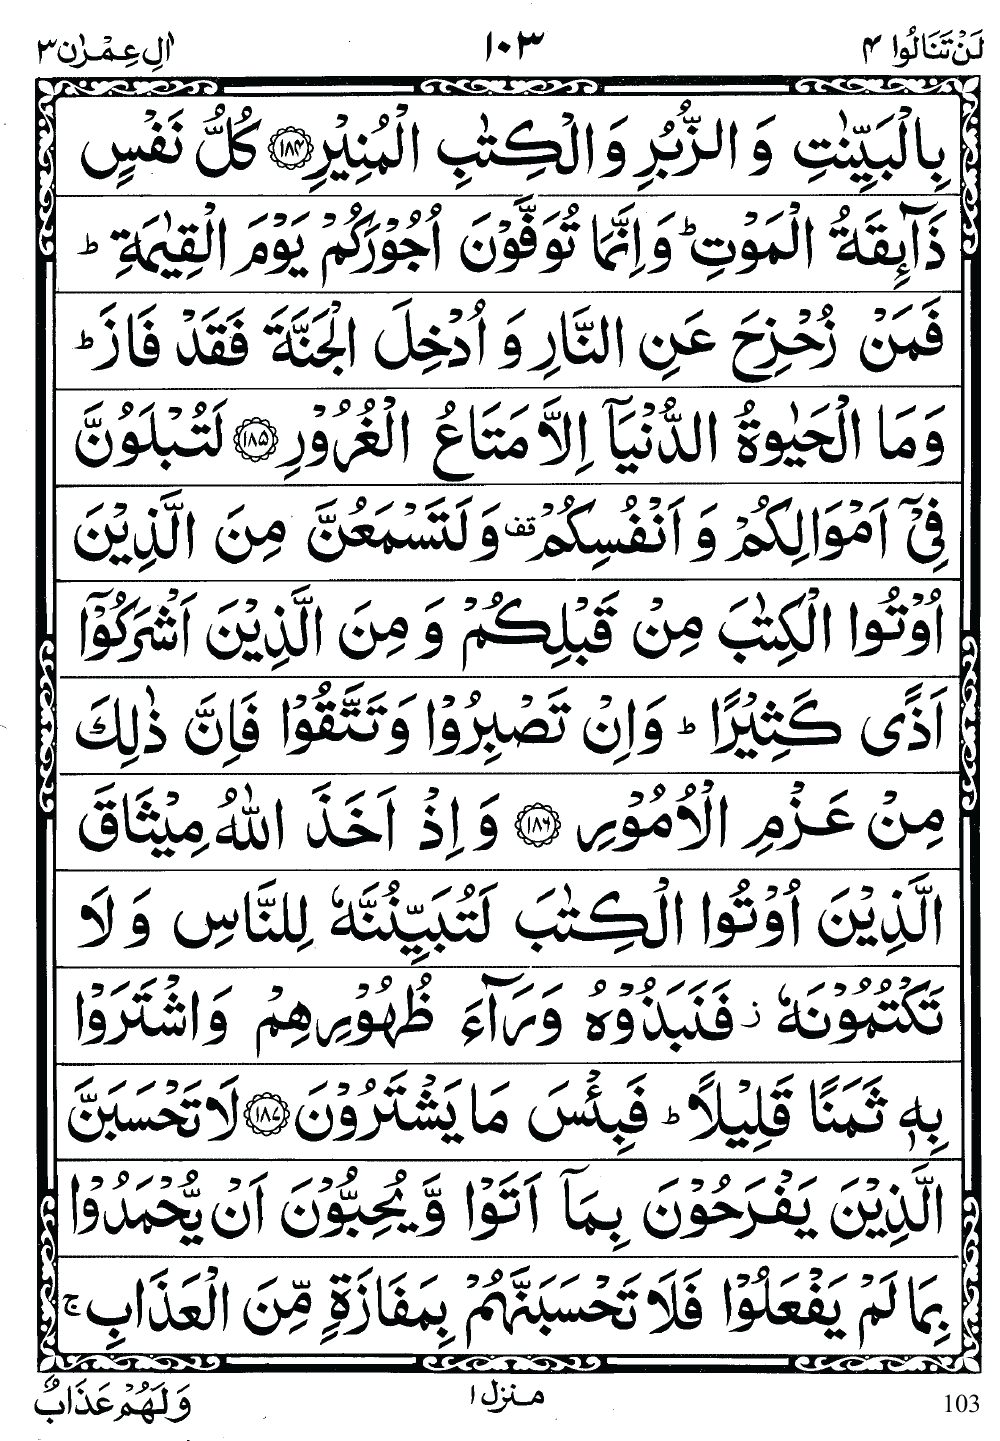 لَنْ تَنَالُوا ۴ ١٠٣ اٰلِ عِمْرٰن ٣
بِالْبَيِّنٰتِ وَ الزُّبُرِ وَ الْكِتٰبِ الْمُنِيْرِ ﴿۱۸۴﴾ كُلُّ نَفْسٍ
ذَآىِٕقَةُ الْمَوْتِ ؕ وَ اِنَّمَا تُوَفَّوْنَ اُجُوْرَكُمْ يَوْمَ الْقِيٰمَةِ ؕ
فَمَنْ زُحْزِحَ عَنِ النَّارِ وَ اُدْخِلَ الْجَنَّةَ فَقَدْ فَازَ ؕ
وَ مَا الْحَيٰوةُ الدُّنْيَاۤ اِلَّا مَتَاعُ الْغُرُوْرِ ﴿۱۸۵﴾ لَتُبْلَوُنَّ
فِيْۤ اَمْوَالِكُمْ وَ اَنْفُسِكُمْ قف وَ لَتَسْمَعُنَّ مِنَ الَّذِيْنَ
اُوْتُوا الْكِتٰبَ مِنْ قَبْلِكُمْ وَ مِنَ الَّذِيْنَ اَشْرَكُوْۤا
اَذًى كَثِيْرًا ؕ وَ اِنْ تَصْبِرُوْا وَ تَتَّقُوْا فَاِنَّ ذٰلِكَ
مِنْ عَزْمِ الْاُمُوْرِ ﴿۱۸۶﴾ وَ اِذْ اَخَذَ اللّٰهُ مِيْثَاقَ
الَّذِيْنَ اُوْتُوا الْكِتٰبَ لَتُبَيِّنُنَّهٗ لِلنَّاسِ وَ لَا
تَكْتُمُوْنَهٗ ز فَنَبَذُوْهُ وَرَآءَ ظُهُوْرِهِمْ وَ اشْتَرَوْا
بِهٖ ثَمَنًا قَلِيْلًا ؕ فَبِئْسَ مَا يَشْتَرُوْنَ ﴿۱۸۷﴾ لَا تَحْسَبَنَّ
الَّذِيْنَ يَفْرَحُوْنَ بِمَاۤ اَتَوْا وَّ يُحِبُّوْنَ اَنْ يُّحْمَدُوْا
بِمَا لَمْ يَفْعَلُوْا فَلَا تَحْسَبَنَّهُمْ بِمَفَازَةٍ مِّنَ الْعَذَابِ ۚ
103 منزل ١ وَ لَهُمْ عَذَابٌ